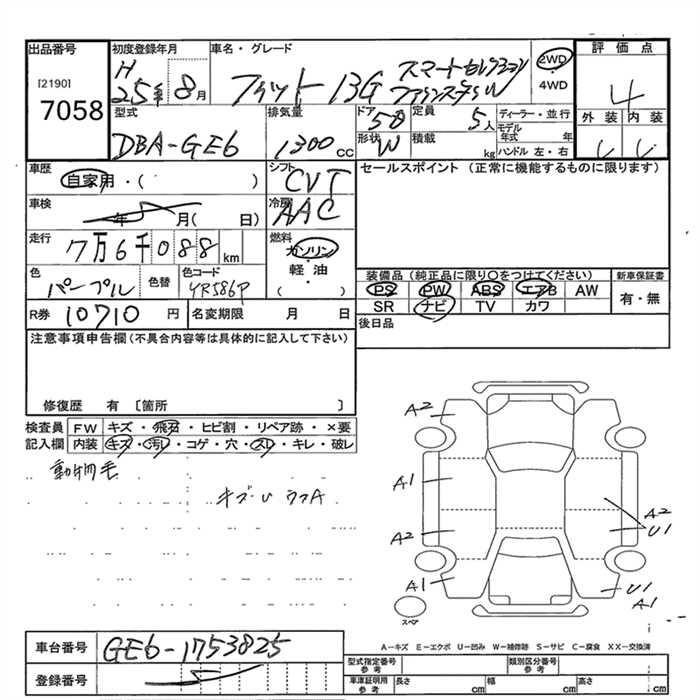 出品番号 初度登録年月 車名・グレード 2WD ・ 4WD 評価点
[2190]
7058
H 25年 8月 フィット 13G スマートセレクション ファインスタイル 4
型式 排気量 ドア 定員 ディーラー・並行 外装 内装
DBA-GE6 1300cc 5D 5人 モデル年式 年
形状 W 積載 kg ハンドル 左・右
車歴 シフト セールスポイント (正常に機能するものに限ります)
自家用・( ) CVT
車検 年 月( 日) 冷房 AAC
走行 7万6千088km 燃料 ガソリン・軽油・( )
色 パープル 色替 色コード YR586P
装備品 (純正品に限り○をつけてください) 新車保証書
PS PW ABS エアB AW 有・無
SR ナビ TV カワ
R券 10710円 名変期限 月 日 後日品
注意事項申告欄 (不具合内容等は具体的に記入して下さい)
修復歴 有 〔箇所 〕
検査員 FW キズ・飛石・ヒビ割・リペア跡・×要
記入欄 内装 キズ・汚レ・コゲ・穴・スレ・キレ・破レ
動物毛
A2
A1
A2
A1
A2
U1
U1
A1
スペア
車台番号 GE6-1753825
登録番号
A-キズ E-エクボ U-凹み W-補修跡 S-サビ C-腐食 XX-交換済
型式指定番号 参考 類別区分番号 参考
車庫証明用 参考 長さ cm 幅 cm 高さ cm